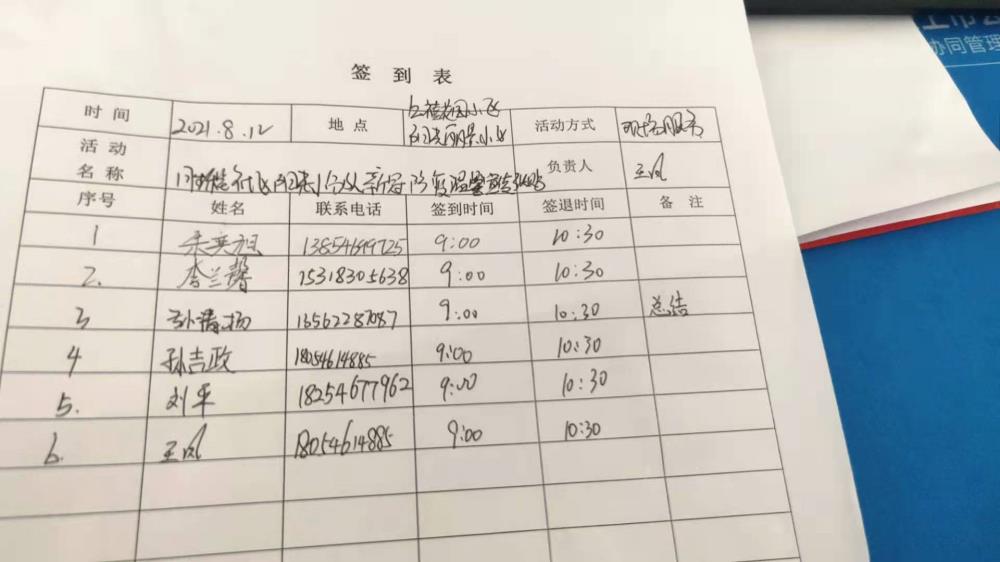 上市公
协同管理
签到表
时间 2021.8.12 地点 活动方式 服务
活动
名称 负责人 王凤
序号 姓名 联系电话 签到时间 签退时间 备注
1 13854649725 9:00 10:30
2. 李兰馨 15318305638 9:00 10:30
3 孙清扬 9:00 10:30 总结
4 孙吉政 18054614885 9:00 10:30
5. 刘平 18254677962 9:00 10:30
6. 王凤 18054614885 9:00 10:30